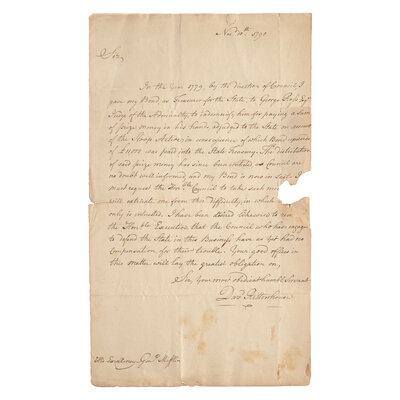 Nov. 10th. 1790
Sir,
In the Year 1779, by the direction of Council, I
gave my Bond, as Treasurer for the State, to George Ross Esqr.
Judge of the Admiralty, to indemnify him for paying a Sum
of prize money in his hands, adjudged to the State on account
of the Sloop Active; in consequence of which Bond upwards
of £11000 was paid into the State Treasury. The distribution
of said prize money has since been contested, Council are
no doubt well informed, and my Bond is now in Suit. I
must request the Honble. Council to take such
will extricate me from this difficulty, in which
only is interested. I have been desired likewise to
the Honble. Executive that the Council who have engaged
to defend the State in this Business have as yet had no
compensation for their trouble. Your good offices in
this matter will lay the greatest obligation on,
Sir, Your most obedient humble Servant
Davd. Rittenhouse
His Excellency Genl. Mifflin